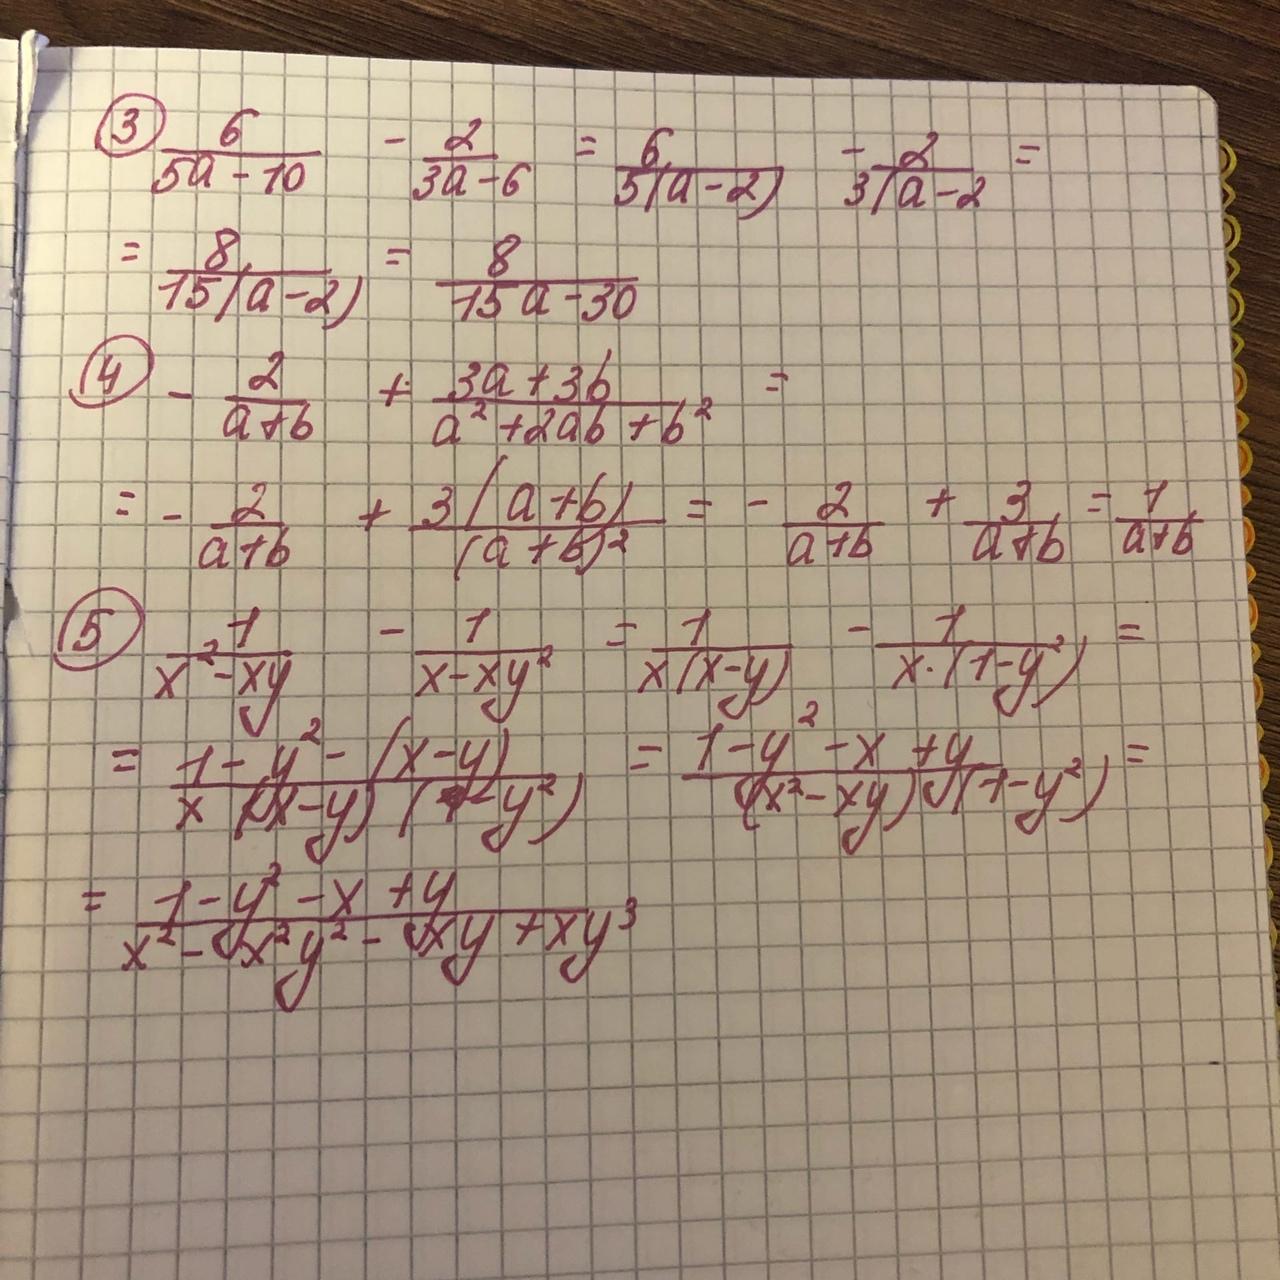 ③ 6/(5a-10) - 2/(3a-6) = 6/(5(a-2)) - 2/(3(a-2 =
= 8/(15(a-2)) = 8/(15a-30)
④ - 2/(a+b) + (3a+3b)/(a²+2ab+b²) =
= - 2/(a+b) + 3(a+b)/(a+b)² = - 2/(a+b) + 3/(a+b) = 1/(a+b)
⑤ 1/(x²-xy) - 1/(x-xy²) = 1/(x(x-y)) - 1/(x·(1-y²)) =
= (1-y²-(x-y))/(x(x-y)(1-y²)) = (1-y²-x+y)/((x²-xy)(1-y²)) =
= (1-y²-x+y)/(x²-x²y²-xy+xy³)